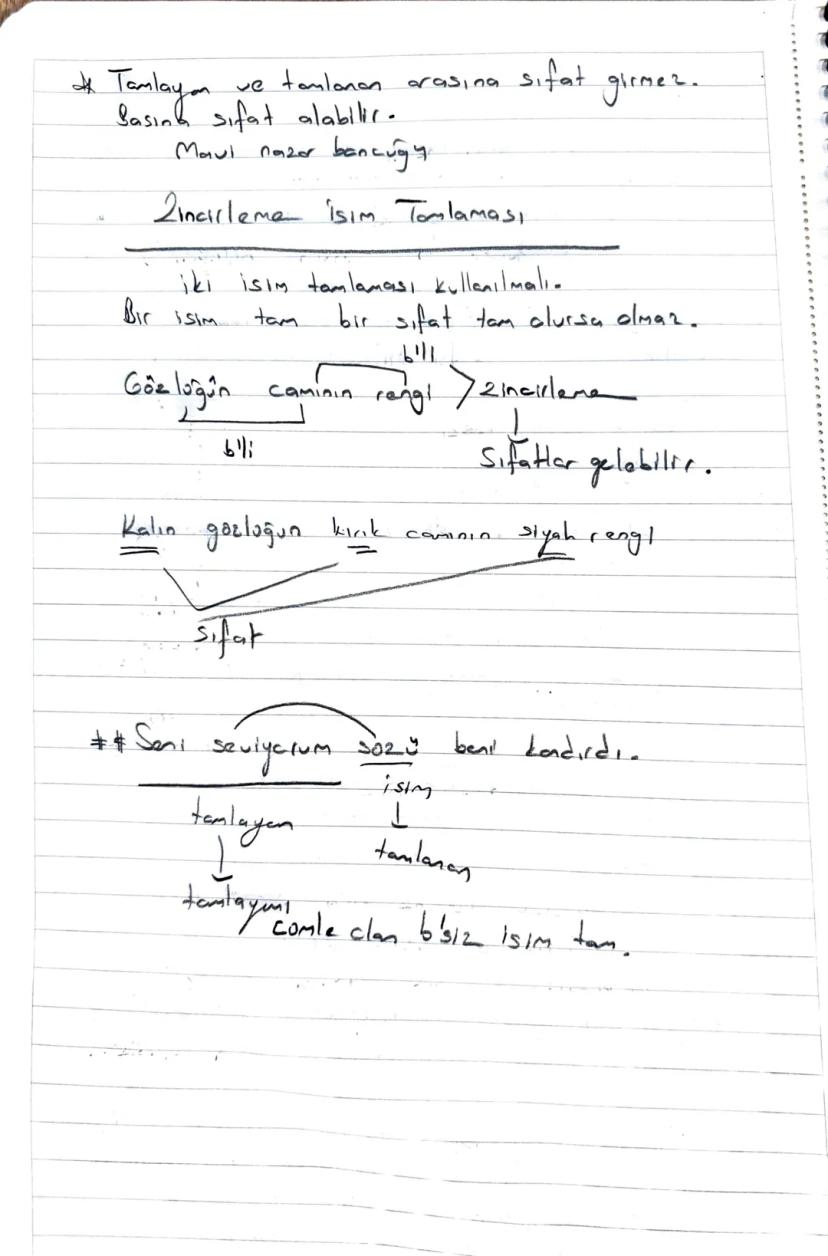 * Tamlayan ve tamlanan arasına sıfat girmez.
Başına sıfat alabilir.
Mavi nazar boncuğu
Zincirleme İsim Tamlaması
iki isim tamlaması kullanılmalı.
Bir isim tam bir sıfat tam olursa olmaz.
b'li
Gözlüğün camının rengi > zincirleme
b'li
Sıfatlar gelebilir.
Kalın gözlüğün kırık camının siyah rengi
sıfat
** Seni seviyorum sözü beni kandırdı.
isim
tamlayan
tamlanan
tamlayanı
cümle olan b'siz isim tam.